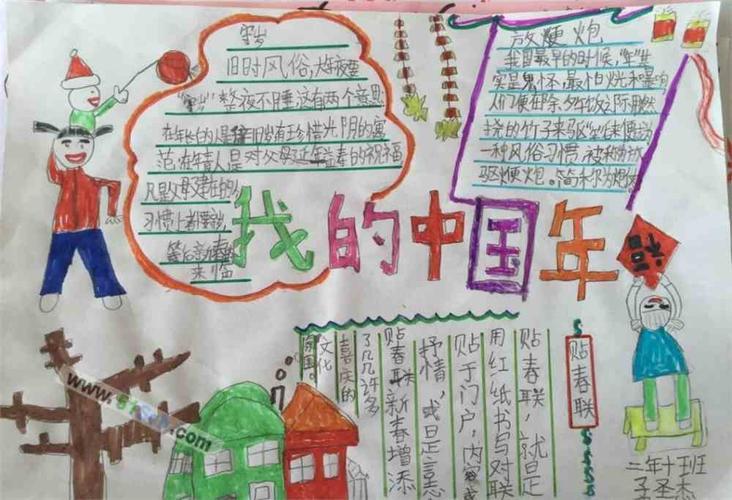 守岁
旧时风俗,大年夜要
"守岁"整夜不睡,这有两个意思
在年长的人是辞旧岁有珍惜光阴的意
范,在年青人是对父母延年益寿的祝福
凡是父母健在的人
习惯上都要守岁
等后新春的
来临
放鞭炮
我国最早的时候,"年"其
实是鬼怀,最怕火光和
人们便在除夕午饭之际用燃
烧的竹子来驱
一种风俗习惯,被称为
驱便炮。简称为
我的中国年
贴春联
贴春联,就是
用红纸书写对联
贴于门户,内容
抒情,或是言志
贴春联新春增添
了几许多
喜庆的
文化
二年十班